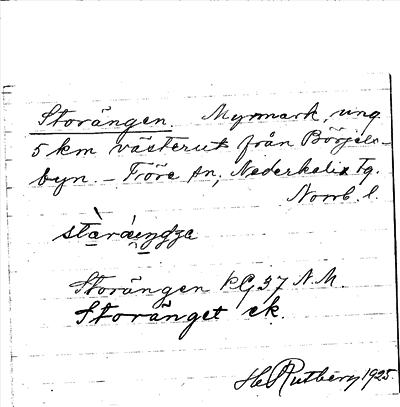 Storängen. Myrmark, ung.
5 km västerut från Börjels-
byn. – Töre sn, Nederkalix Tg.
Norrb. l.
Storängen kG 37 N.M.
Storänget ek.
Rutberg 1925.